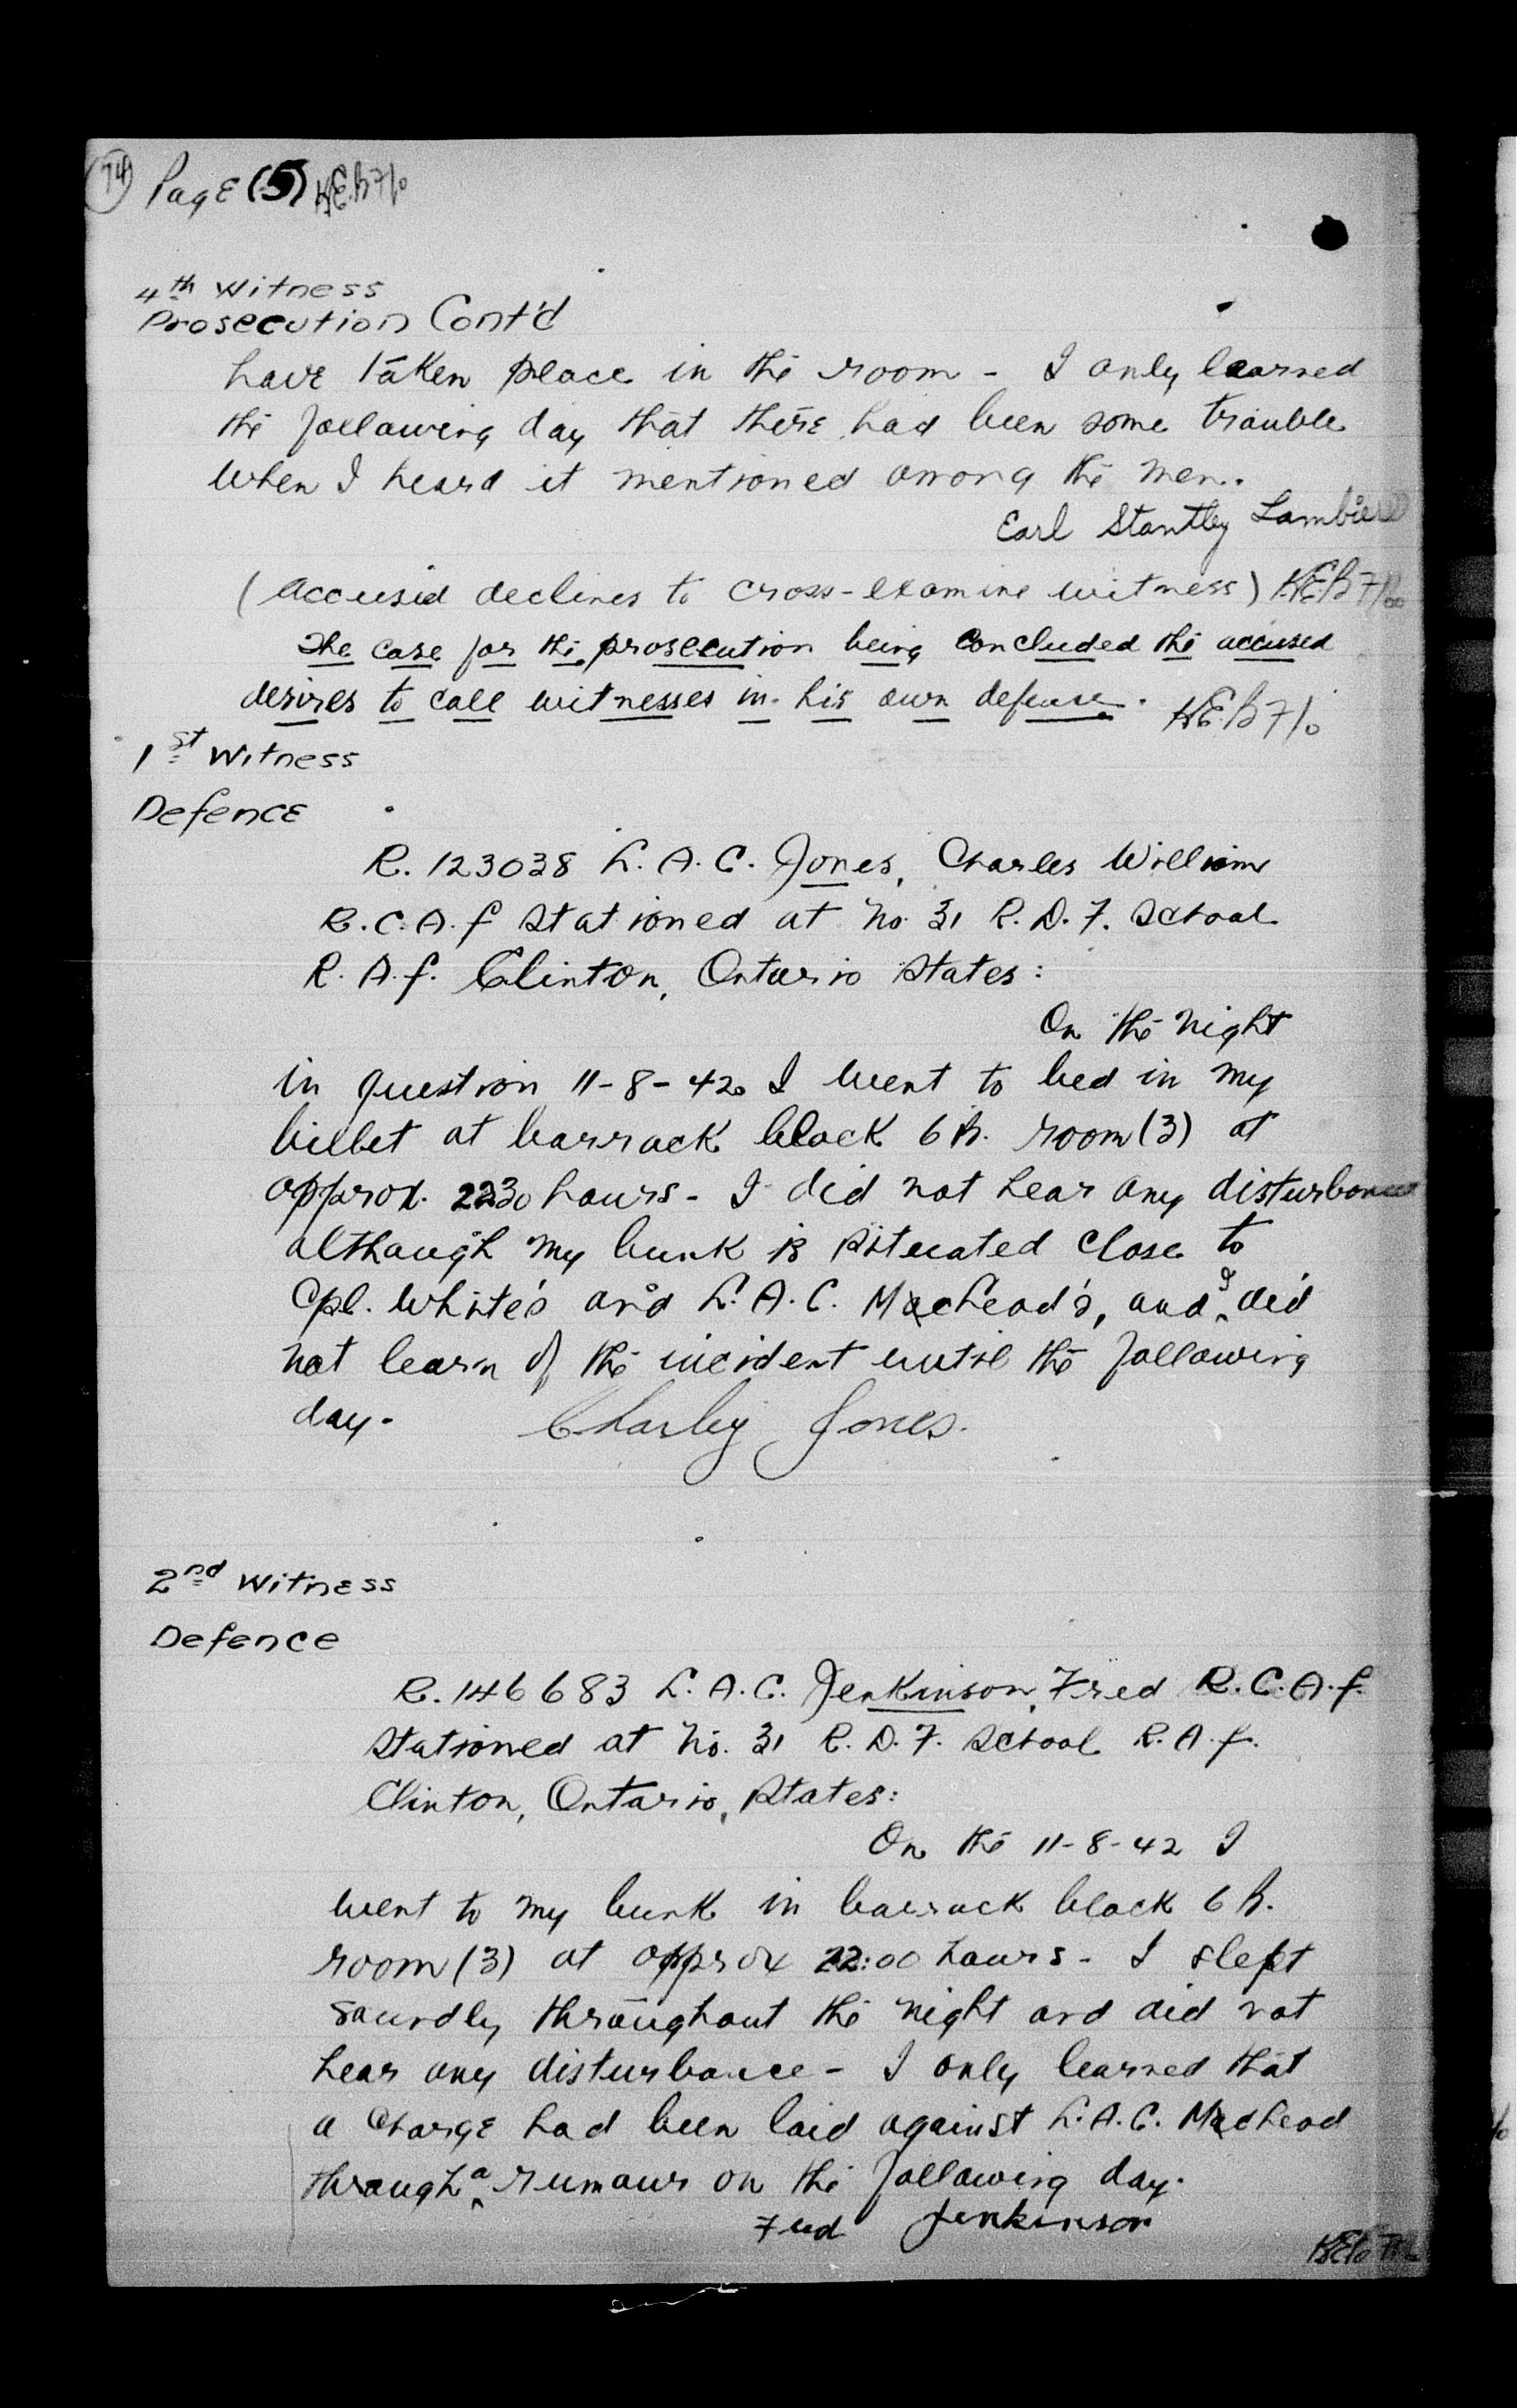 74
Page (5) K.E.B. F/O
4th Witness
Prosecution Cont'd
have taken place in the room - I only learned
the following day that there had been some trouble
when I heard it mentioned among the men.
Earl Stantley
(Accused declines to cross-examine witness) K.E.B. F/O
The case for the prosecution being concluded the accused
desires to call witnesses in his own defense. K.E.B. F/O
1st Witness
Defence
R. 123038 L.A.C. Jones, Charles William
R.C.A.F stationed at No. 31 R.D.F. School
R.A.F. Clinton, Ontario states:
On the night
in question 11-8-42 I went to bed in my
billet at barrack block 6B. room (3) at
approx. 2230 hours - I did not hear any disturbance
although my bunk is situated close to
Cpl. White's and L.A.C. MacLeod's, and I did
not learn of the incident until the following
day. Charley Jones.
2nd Witness
Defence
R. 146683 L.A.C. Jenkinson, Fred R.C.A.F.
stationed at No. 31 R.D.F. School R.A.F.
Clinton, Ontario, states:
On the 11-8-42 I
went to my bunk in barrack block 6B.
room (3) at approx 22:00 hours - I slept
soundly throughout the night and did not
hear any disturbance - I only learned that
a charge had been laid against L.A.C. MacLeod
through a rumour on the following day.
Fred Jenkinson